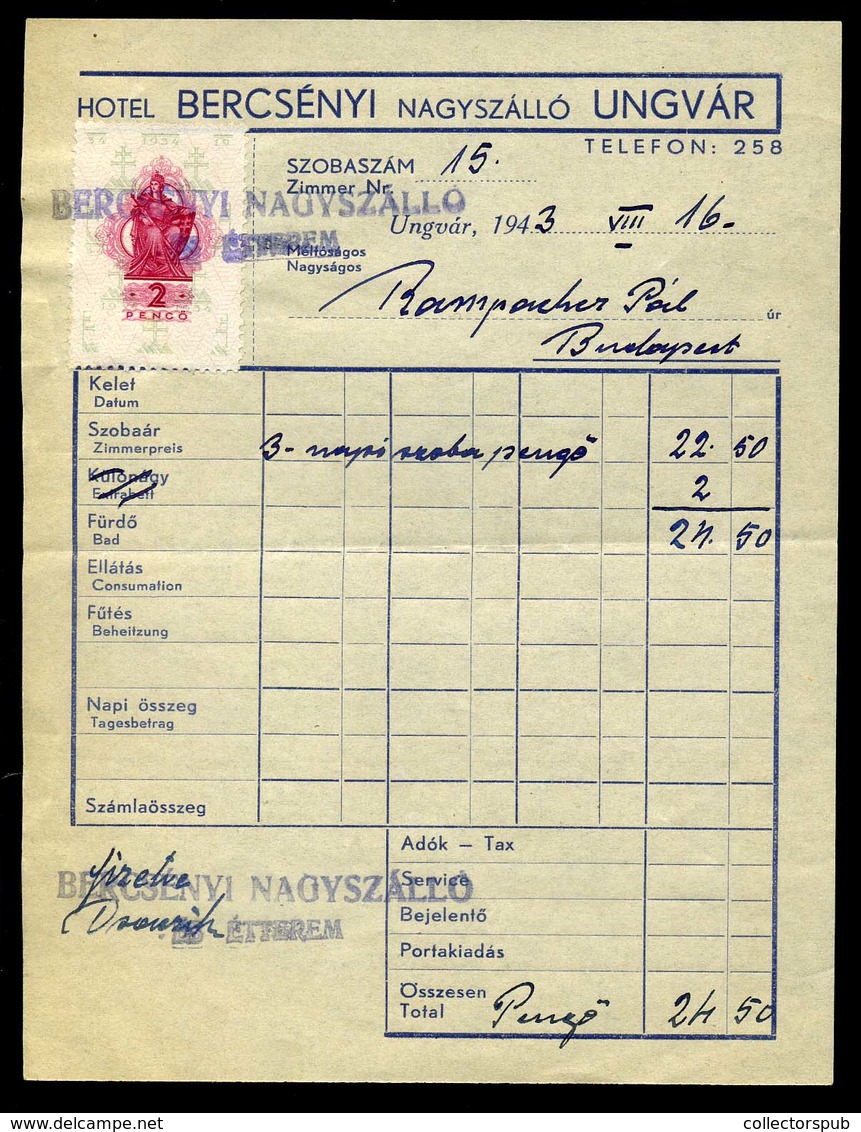 HOTEL BERCSÉNYI NAGYSZÁLLÓ UNGVÁR
TELEFON: 258
34 1934 16
2
PENGŐ
SZOBASZÁM 15.
Zimmer Nr.
BERCSÉNYI NAGYSZÁLLÓ
ÉS ÉTTEREM
Ungvár, 1943 VIII 16-
Méltóságos
Nagyságos
Pál úr
Budapest
Kelet
Datum
Szobaár 3- napi szoba pengő 22. 50
Zimmerpreis
Különágy 2
Extrabett
Fürdő 24. 50
Bad
Ellátás
Consumation
Fűtés
Beheitzung
Napi összeg
Tagesbetrag
Számlaösszeg
Adók – Tax
Service
Bejelentő
Portakiadás
Összesen
Total Pengő 24 50
fizetve
BERCSÉNYI NAGYSZÁLLÓ
ÉS ÉTTEREM
delcampe.net
collectorspub